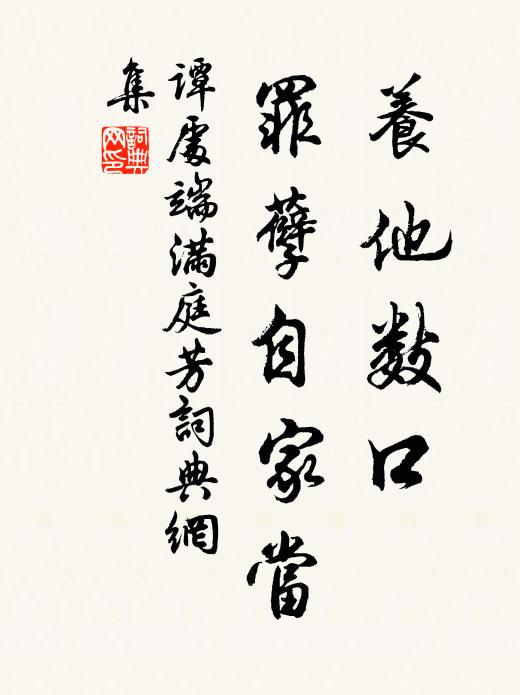 養他數口
罪孽自家當
譚處端滿庭芳詞典網
集
詞典網印